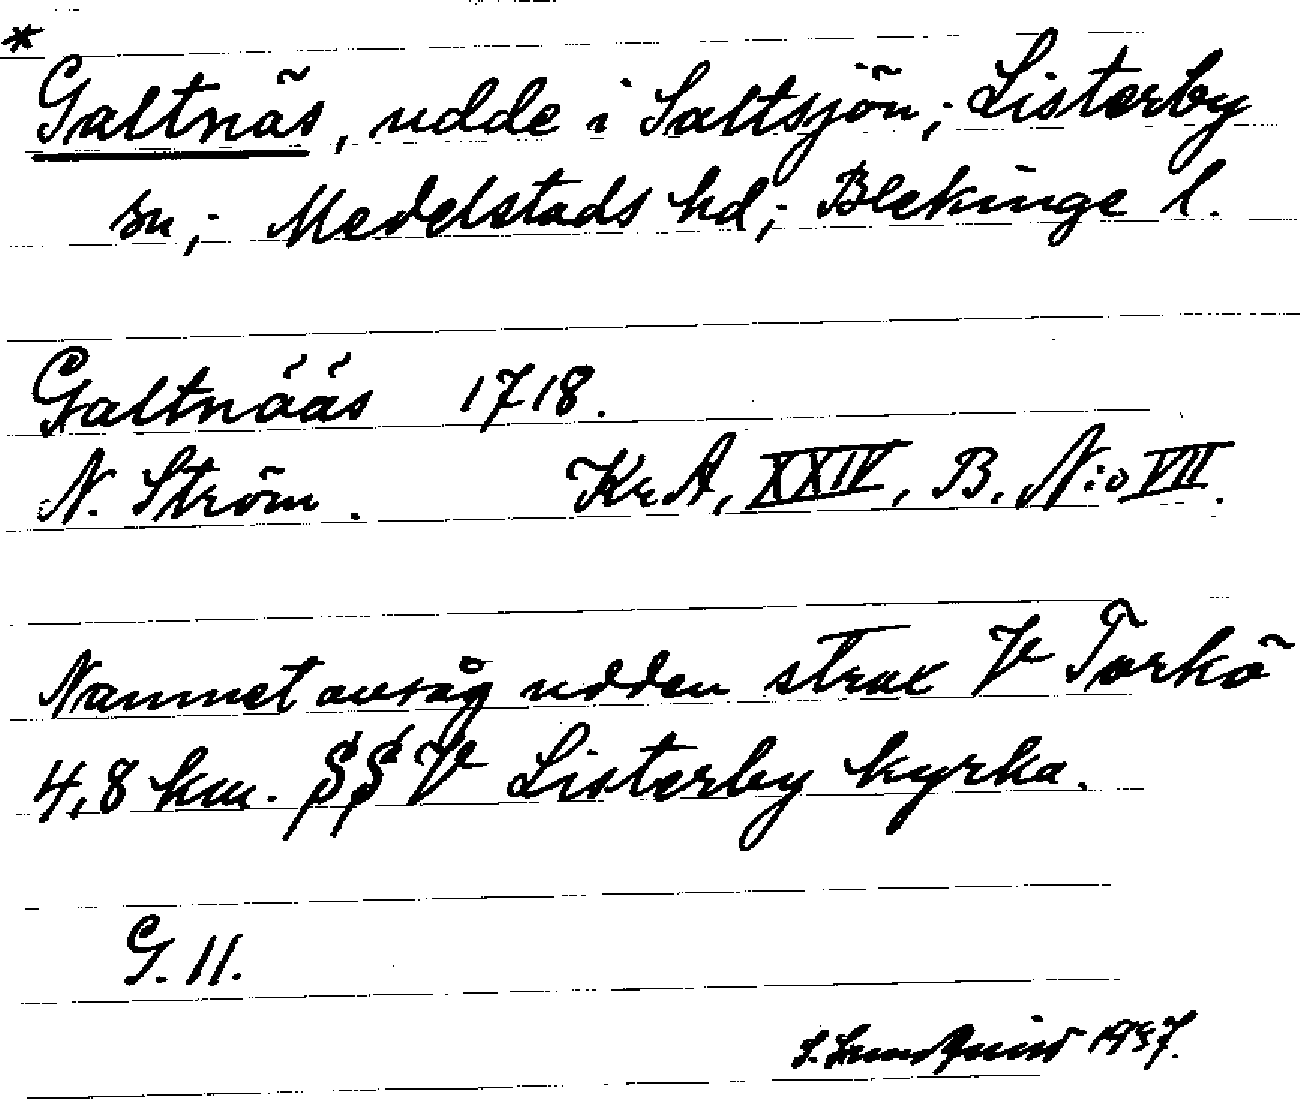 *
Galtnäs, udde i Saltsjön; Listerby
sn; Medelstads hd; Blekinge l.
Galtnääs 1718.
N. Ström. Kr.A, XXIV, B. N:o VII.
Namnet avsåg udden strax V Torkö
4,8 km. SSV Listerby kyrka.
G. 11.
S. Lundquist 1937.